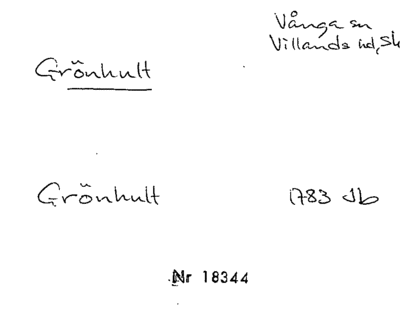 Vånga sn
Villands hd, Sk
Grönhult
Grönhult 1783 Jb
Nr 18344